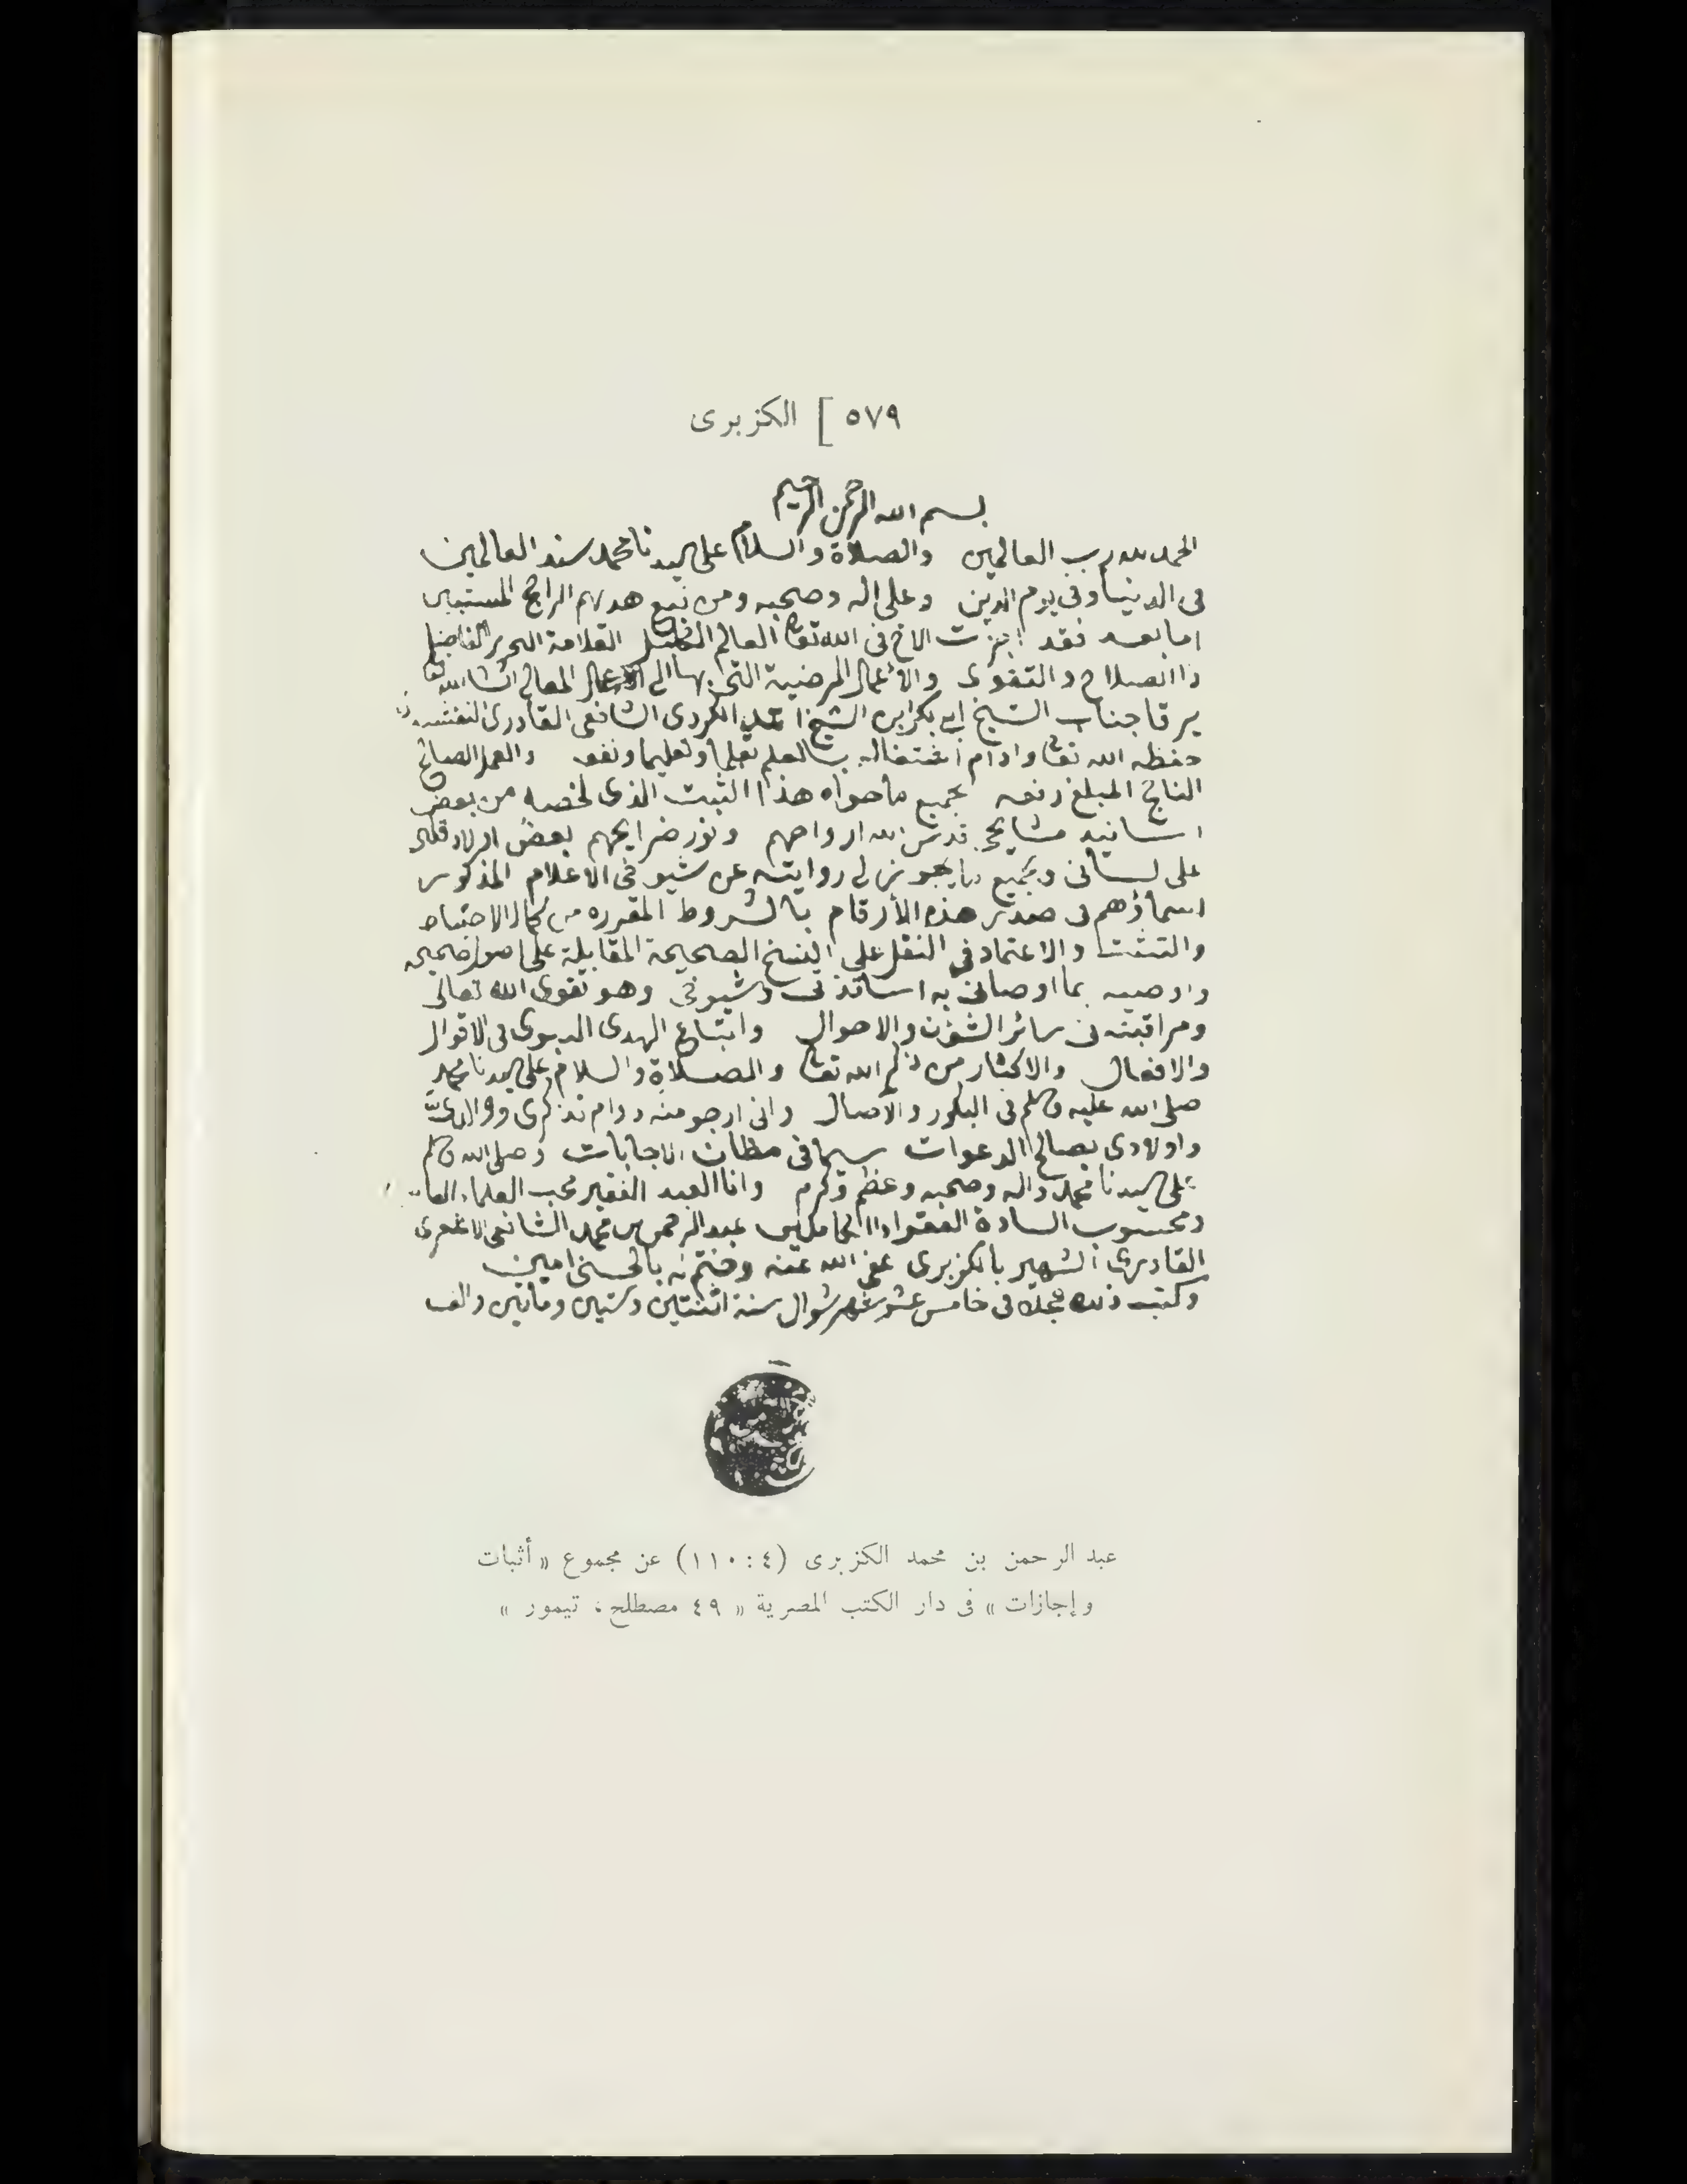 ٥٧٩ ] الكزبرى
بسم الله الرحمن الرحيم
الحمد لله رب العالمين والصلاة والسلام على سيدنا محمد سند العالمين
فى الدنيا وفى يوم الدين وعلى اله وصحبه ومن تبع هديهم الراجح المستبين
اما بعد فقد اجزت الاخ فى الله تعا العالم العلامة النحرير الفاضل
ذا الصلاح والتقوى والأعمال المرضية التى بها الى المعالى انشا الله
يرقا جناب الشيخ ابى بكر ابن الشيخ احمد الكردى الشافعى القادرى
حفظه الله تعا وادام اشتغاله بالعلم تعلما وتعليما ونفعه والعمل الصالح
الناجح المبلغ رفعه بجميع ما حواه هذا الثبت الذى لخصه من بعض
اسانيد مشايخى قدس الله ارواحهم ونور ضرايحهم بعض
على لسانى وبجميع ما يجوز لى روايته عن شيوخى الاعلام المذكور
اسماؤهم فى صدر هذه الأرقام بالشروط المقرره من كمال الاحتياط
والتثبت والاعتماد فى النقل على النسخ الصحيحة المقابلة على اصول صحيحه
واوصيه بما اوصانى به اساتذتى وشيوخى وهو تقوى الله تعالى
ومراقبته فى سائر الشؤن والاحوال واتباع الهدى النبوى فى الاقوال
والافعال والاكثار من ذكر الله تعا والصلاة والسلام على سيدنا محمد
صلى الله عليه وسلم فى البكور والآصال وانى ارجو منه دوام تذكرى ووالدىّ
واولادى بصالح الدعوات سيما فى مظان الاجابات وصلى الله وسلم
على سيدنا محمد واله وصحبه وعظم وكرم وانا العبد الفقير محب العلماء
ومحسوب السادة الفقراء الكاملين عبد الرحمن بن محمد الشافعى الاشعرى
القادرى الشهير بالكزبرى عفى الله عنه وختم له بالحسنى امين
وكتب ذلك عجلا فى خامس عشر شهر شوال سنة اثنتين وستين وماتين والف
عبد الرحمن بن محمد الكزبرى (٤ : ١١٠) عن مجموع « أثبات
وإجازات » فى دار الكتب المصرية « ٤٩ مصطلح ، تيمور »